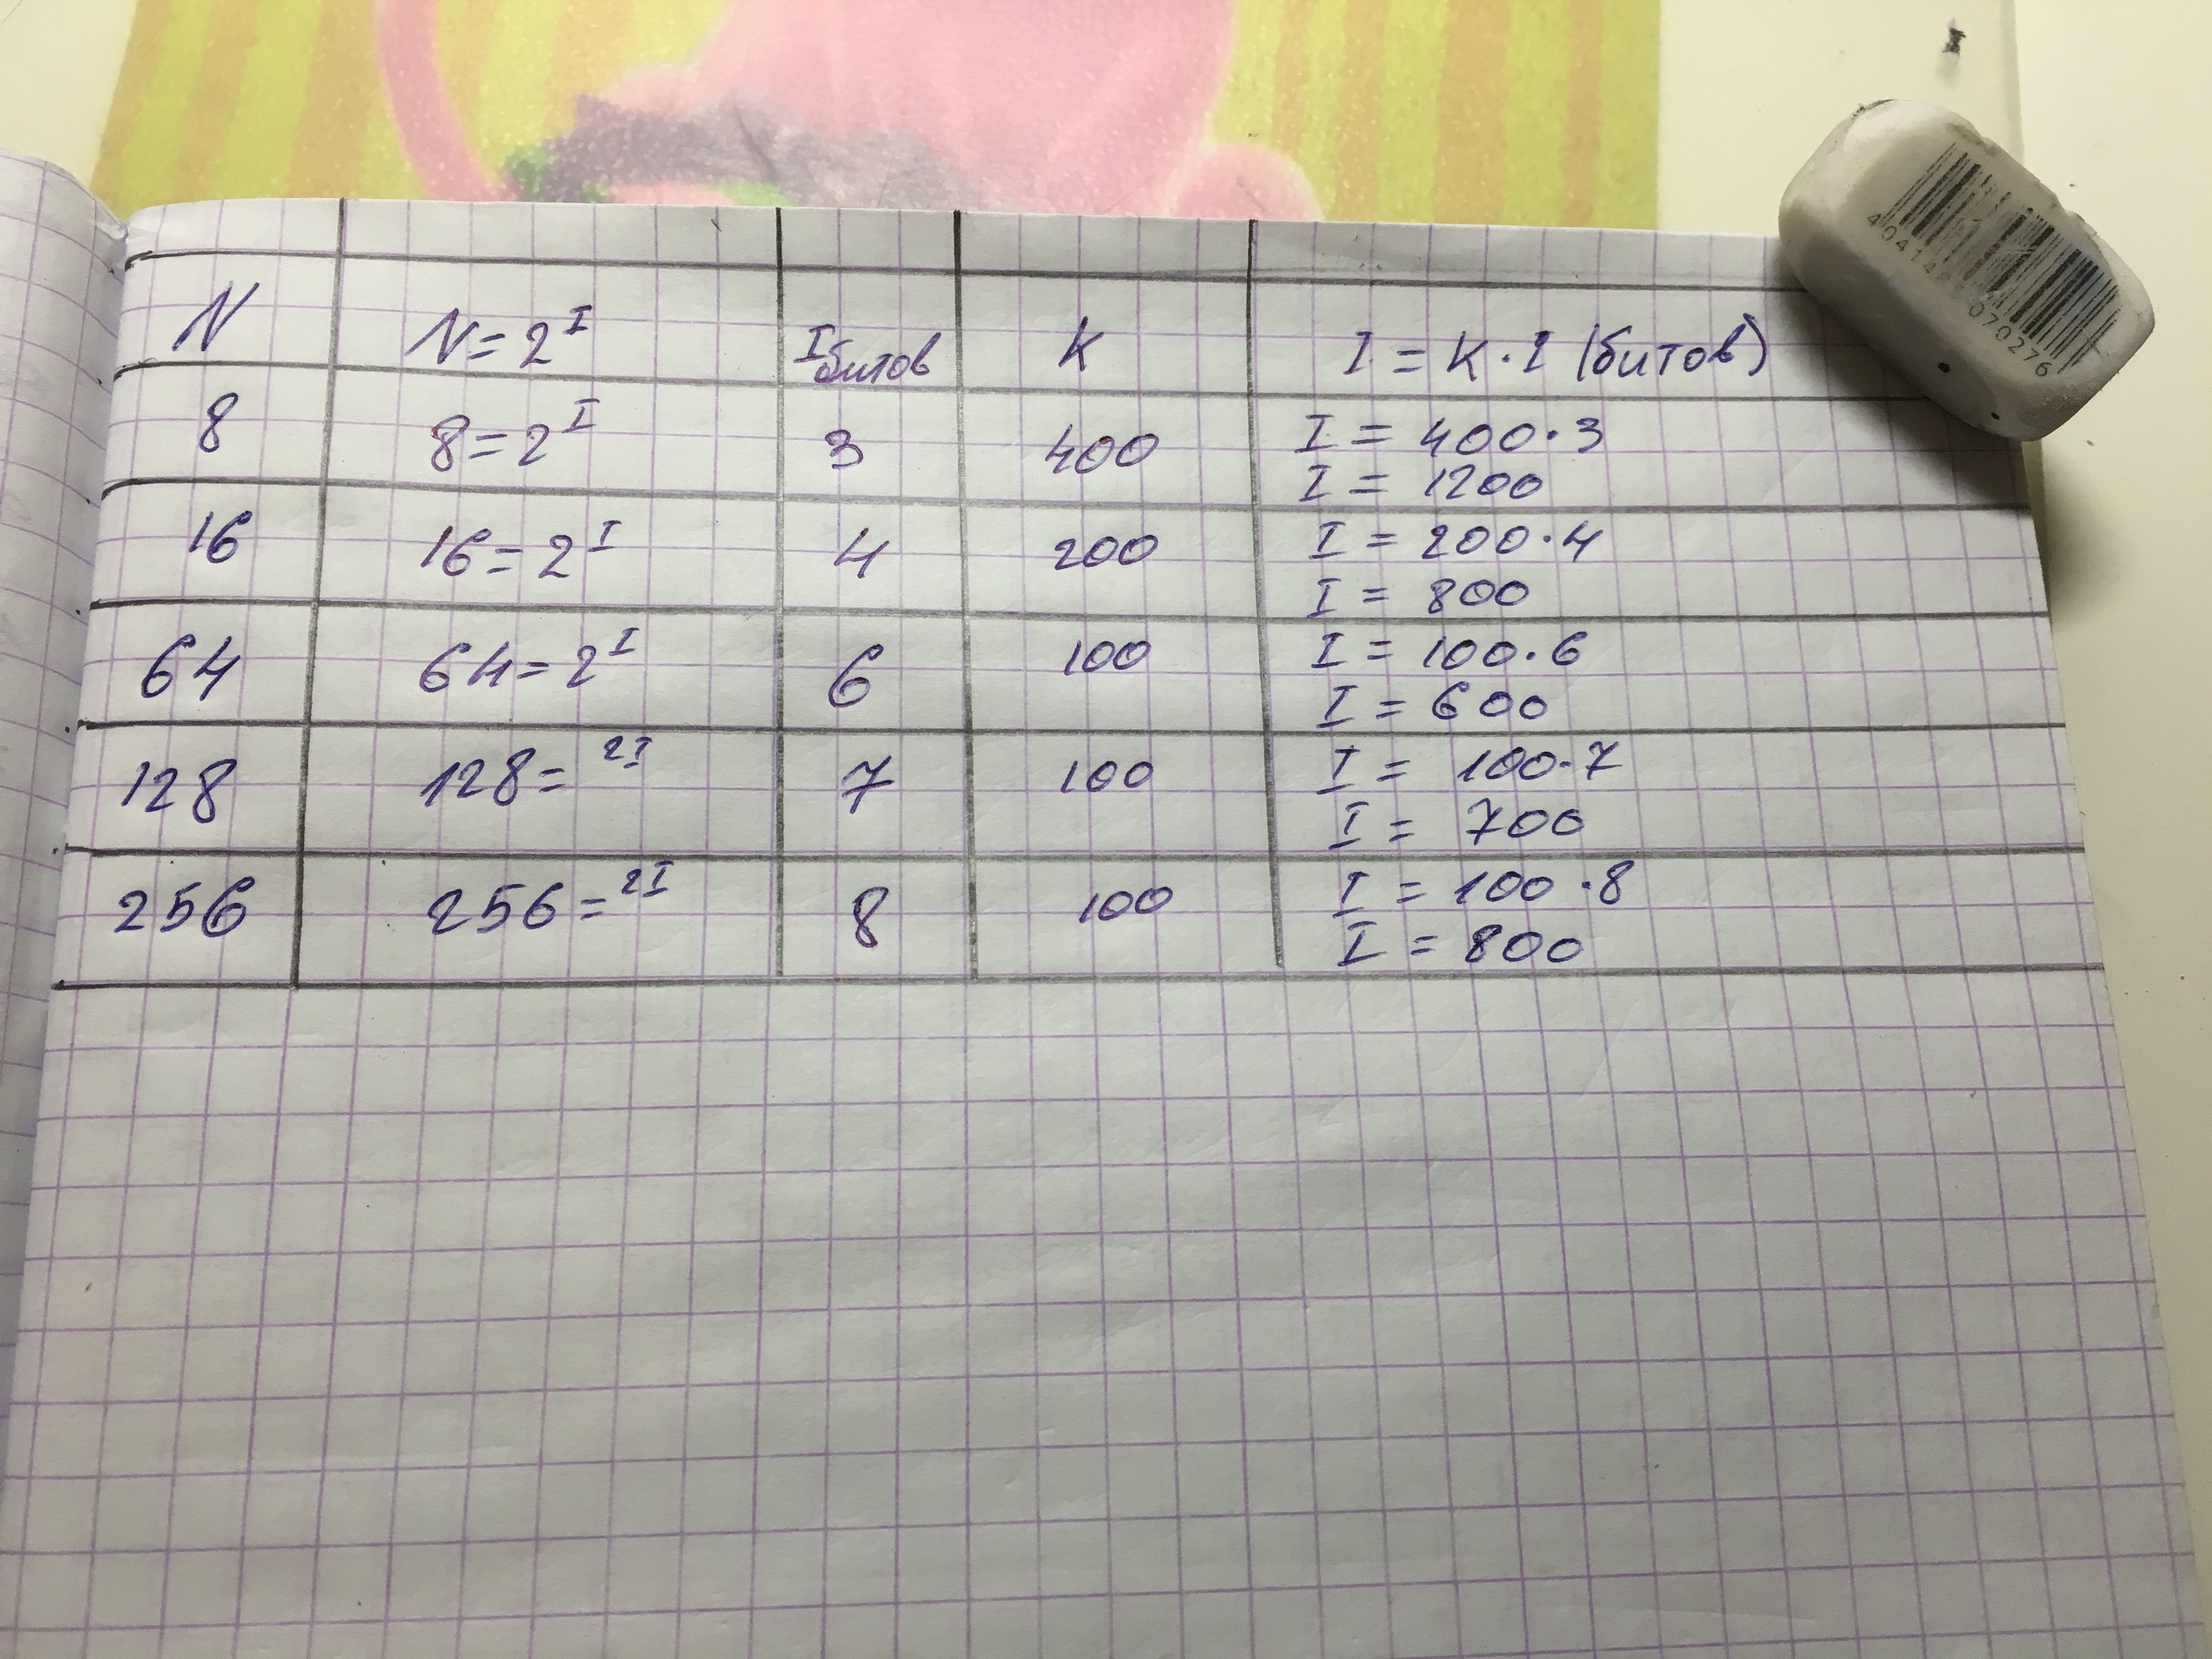 N N = 2^I I битов K I = K · I (битов)
8 8 = 2^I 3 400 I = 400 · 3
I = 1200
16 16 = 2^I 4 200 I = 200 · 4
I = 800
64 64 = 2^I 6 100 I = 100 · 6
I = 600
128 128 = 2I 7 100 I = 100 · 7
I = 700
256 256 = 2I 8 100 I = 100 · 8
I = 800